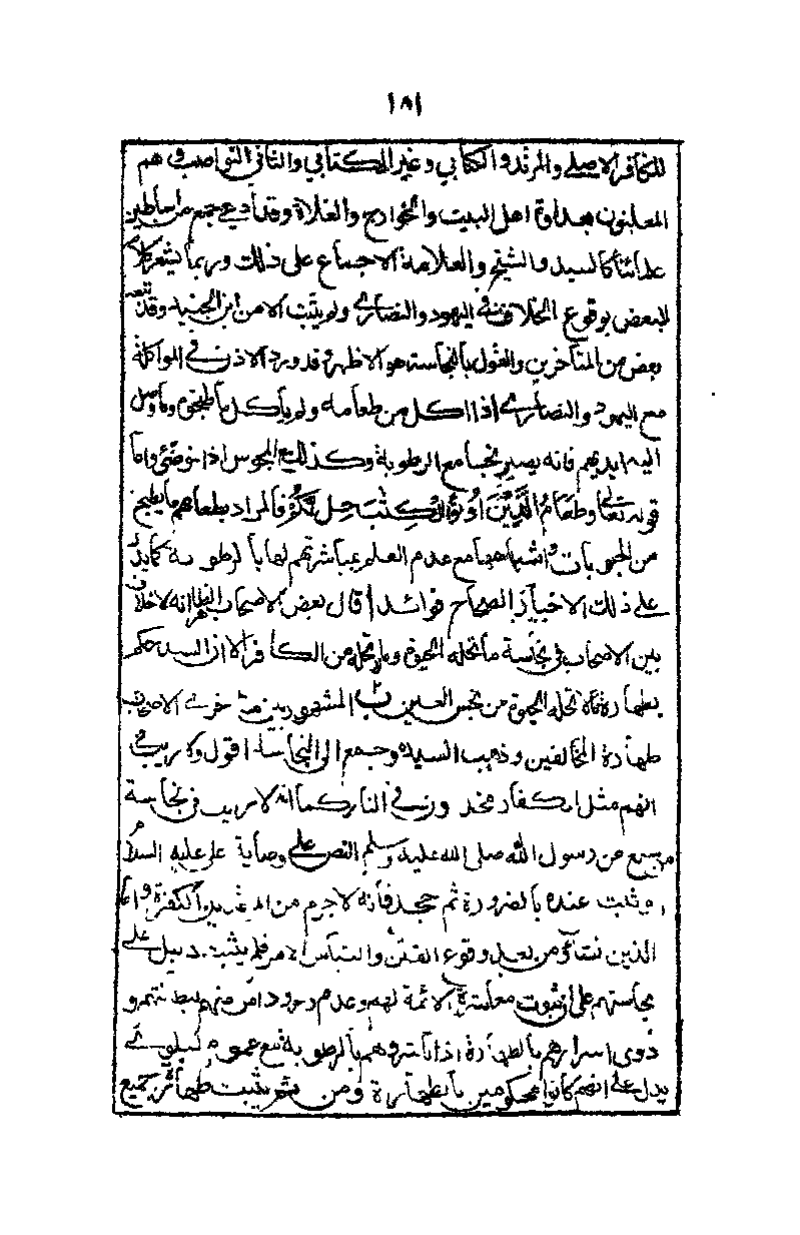 ١٨١
للكافر الاصلي والمرتد والكتابي وغير الكتابي والثاني النواصب وهم
المعلنون بعداوة اهل البيت والخوارج والغلاة وقد ادعي جمع من اساطين
علمائنا كالسيد والشيخ والعلامة الاجماع على ذلك وربما يشعر كلام
البعض بوقوع الخلاف في اليهود والنصارى ولم يثبت الا من ابن الجنيد وقد تبعه
بعض من المتأخرين والقول بالنجاسة هو الاظهر وقد ورد الاذن في المواكلة
مع اليهود والنصارى اذا اكل من طعامه ولم يأكل ما طبخوه وما وصل
اليه ايديهم فانه يصير نجسا مع الرطوبة وكذلك مع المجوس اذا توضئ واما
قوله تعالى وطعام الذين اوتوا الكتب حل لكم فالمراد بطعامهم ما يطبخ
من الحبوبات واشباهها مع عدم العلم بمباشرتهم لها بالرطوبة كما يدل
على ذلك الاخبار الصحاح فوائد ا قال بعض الاصحاب الظاهر انه لا خلاف
بين الاصحاب في نجاسة ما تحله الحيوة وما لا تحله من الكافر الا ان السيد حكم
بطهارة ما لا تحله الحيوة من نجس العين ب المشهور بين متأخرى الاصحاب
طهارة المخالفين وذهب السيد وجمع الى النجاسة اقول ولا ريب في
انهم مثل الكفار مخلدون في النار كما انه لا ريب في نجاسة
من سمع من رسول الله صلى الله عليه وسلم النص على وصاية على عليه السلام
او ثبت عنده بالضرورة ثم جحد فانه لا جرم من المرتدين الكفرة واما
الذين نشاؤ من بعد وقوع الفتن والتباس الامر فلم يثبت دليل على
نجاستهم على ان ثبوت معاشرة الائمة لهم وعدم ورود امر منهم لبطانتهم و
ذوى اسرارهم بالطهارة اذا باشروهم بالرطوبة مع عموم البلوى
يدل على انهم كانوا محكومين بالطهارة ومن ثم يثبت طهارة جميع